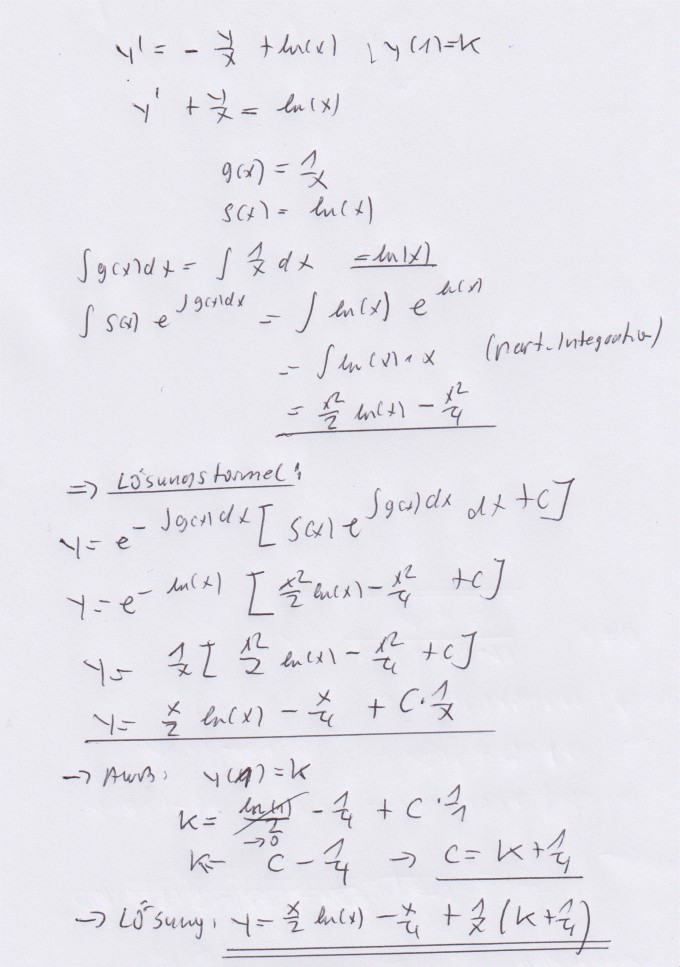 y' = - y/x + ln(x) , y(1)=k
y' + y/x = ln(x)
g(x) = 1/x
s(x) = ln(x)
∫g(x)dx = ∫ 1/x dx = ln(x)
∫ s(x) e^(∫g(x)dx) = ∫ ln(x) e^(ln(x))
= ∫ ln(x) · x (part. Integration)
= x²/2 ln(x) - x²/4
=> Lösungsformel:
y = e^(-∫g(x)dx) [ s(x) e^(∫g(x)dx) dx + C ]
y = e^(-ln(x)) [ x²/2 ln(x) - x²/4 + C ]
y = 1/x [ x²/2 ln(x) - x²/4 + C ]
y = x/2 ln(x) - x/4 + C · 1/x
-> AWB: y(1) = k
k = ln(1)/2 - 1/4 + C · 1/1
->0
k = C - 1/4 -> C = k + 1/4
-> Lösung: y = x/2 ln(x) - x/4 + 1/x (k + 1/4)